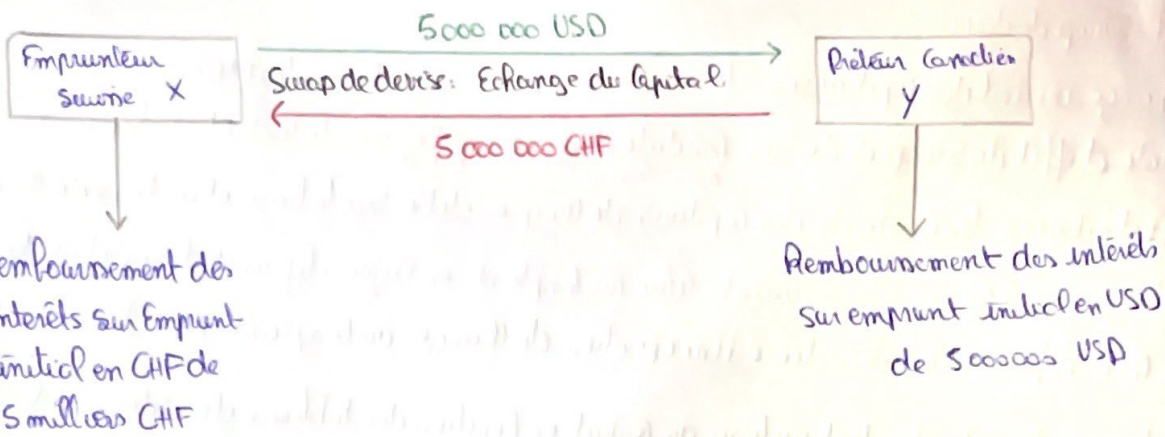 5000 000 USD
Emprunteur
Suisse X
Swap de devise: Echange du Capital
5 000 000 CHF
Prêteur Canadien
Y
emboursement des
nterêts sur Emprunt
initial en CHF de
5 millions CHF
Remboursement des intérêts
sur emprunt initial en USD
de 5000000 USD